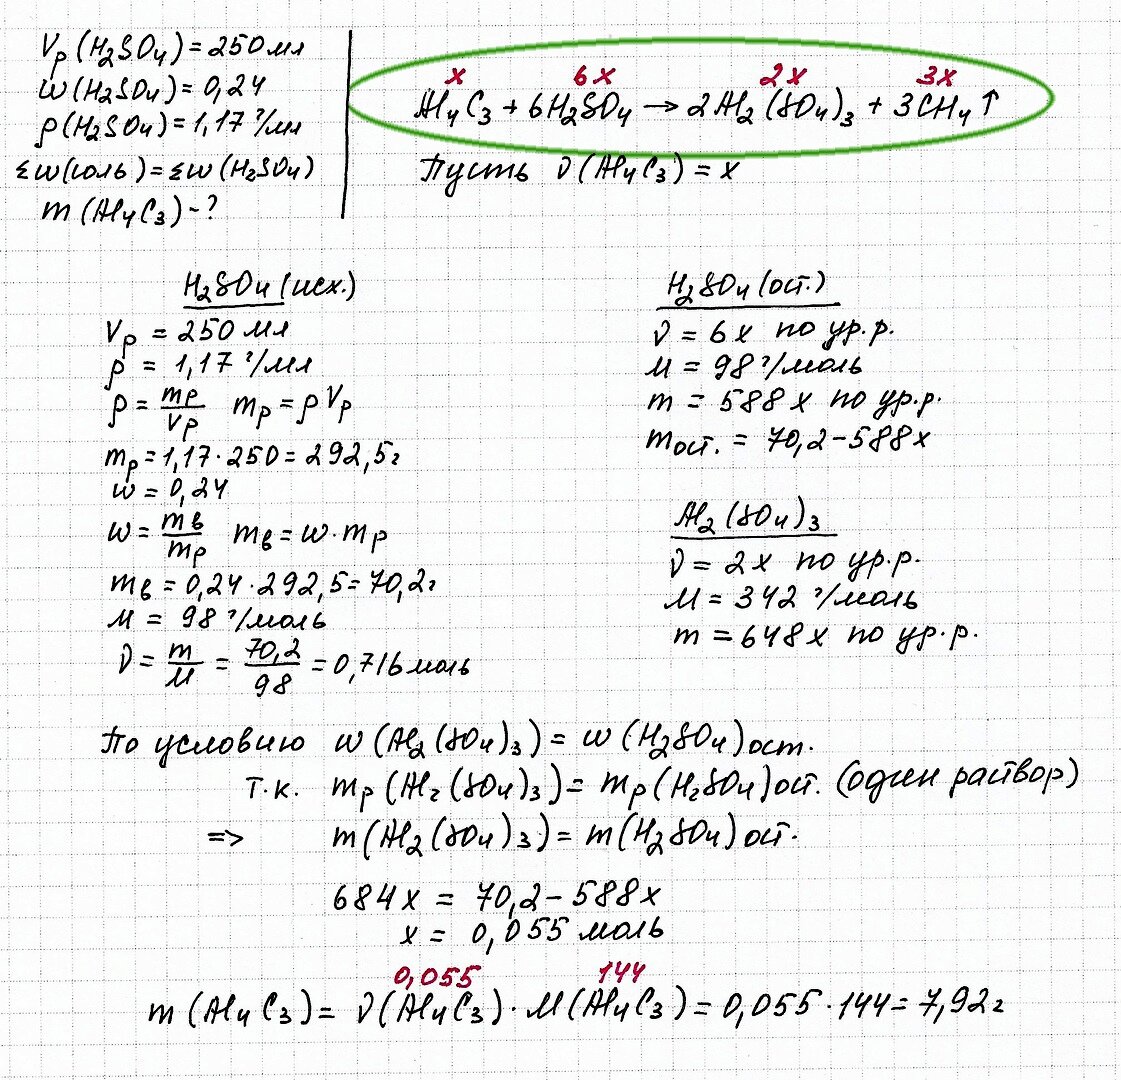 Vр (H₂SO₄) = 250 мл
w(H₂SO₄) = 0,24
ρ(H₂SO₄) = 1,17 г/мл
Σw(соль) = Σw(H₂SO₄)
m (Al₄C₃) - ?
x 6x 2x 3x
Al₄C₃ + 6H₂SO₄ → 2Al₂(SO₄)₃ + 3CH₄↑
Пусть ν(Al₄C₃) = x
H₂SO₄ (исх.)
Vр = 250 мл
ρ = 1,17 г/мл
ρ = mр/Vр mр = ρ Vр
mр = 1,17 · 250 = 292,5 г
w = 0,24
w = mв/mр mв = w · mр
mв = 0,24 · 292,5 = 70,2 г
M = 98 г/моль
ν = m/M = 70,2/98 = 0,716 моль
H₂SO₄ (ост.)
ν = 6x по ур.р.
M = 98 г/моль
m = 588x по ур.р.
mост. = 70,2 - 588x
Al₂(SO₄)₃
ν = 2x по ур.р.
M = 342 г/моль
m = 648x по ур.р.
По условию w(Al₂(SO₄)₃) = w(H₂SO₄)ост.
т.к. mр(Al₂(SO₄)₃) = mр(H₂SO₄)ост. (один раствор)
=> m(Al₂(SO₄)₃) = m(H₂SO₄)ост.
684x = 70,2 - 588x
x = 0,055 моль
0,055 144
m (Al₄C₃) = ν(Al₄C₃) · M(Al₄C₃) = 0,055 · 144 = 7,92 г